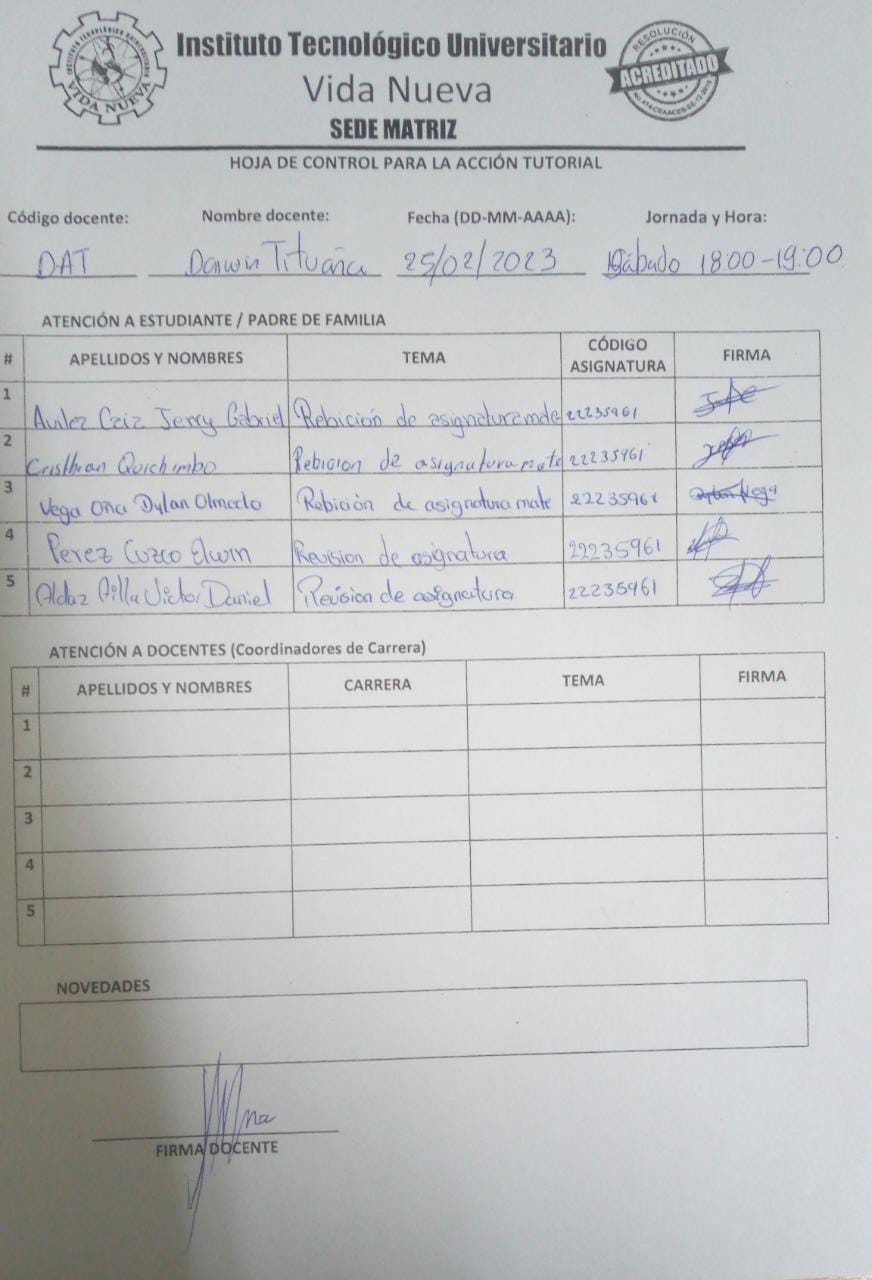 INSTITUTO TECNOLÓGICO UNIVERSITARIO
VIDA NUEVA
Instituto Tecnológico Universitario
Vida Nueva
SEDE MATRIZ
RESOLUCIÓN
ACREDITADO
HOJA DE CONTROL PARA LA ACCIÓN TUTORIAL
Código docente: Nombre docente: Fecha (DD-MM-AAAA): Jornada y Hora:
DAT Darwin Tituaña 25/02/2023 Sábado 18:00-19:00
ATENCIÓN A ESTUDIANTE / PADRE DE FAMILIA
# APELLIDOS Y NOMBRES TEMA CÓDIGO ASIGNATURA FIRMA
1 Aviles Caiz Jerry Gabriel Rebición de asignatura mate 22235961
2 Cristhian Quichimbo Rebicion de asignatura mate 22235961
3 Vega Oña Dylan Olmedo Rebición de asignatura mate 22235961
4 Perez Cuzco Elwin Revision de asignatura 22235961
5 Aldaz Pilla Victor Daniel Revision de asignatura 22235961
ATENCIÓN A DOCENTES (Coordinadores de Carrera)
# APELLIDOS Y NOMBRES CARRERA TEMA FIRMA
1
2
3
4
5
NOVEDADES
FIRMA DOCENTE